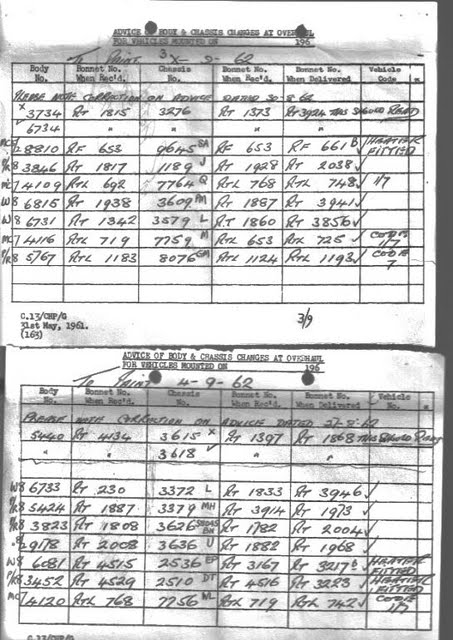 ADVICE OF BODY & CHASSIS CHANGES AT OVERHAUL
FOR VEHICLES MOUNTED ON 196
To Paint 3 - 9 - 62
Body No. Bonnet No. When Rec'd. Chassis No. Bonnet No. When Rec'd. Bonnet No. When Delivered Vehicle Code *
PLEASE NOTE CORRECTION ON ADVICE DATED 30-8-62
x 3734 RT 1815 3276 RT 1373 RT 3924 THIS SHOULD READ
6734 " " " "
MC 7 8810 RF 653 9645 SA RF 653 RF 661 B HEATER FITTED
P/R 8 3846 RT 1817 1189 J RT 1928 RT 2038
MC 7 4109 RTL 692 7764 Q RTL 768 RTL 748 1/7
W 8 6815 RT 1938 3609 RT 1887 RT 3941
W 8 6731 RT 1342 3579 L RT 1860 RT 3856
MC 7 4116 RTL 719 7759 M RTL 653 RTL 725 CODE 1/7
P/R 8 5767 RTL 1183 8076 GM RTL 1124 RTL 1193 CODE 7
C.13/CHP/G
31st May, 1961.
(163)
3/9
ADVICE OF BODY & CHASSIS CHANGES AT OVERHAUL
FOR VEHICLES MOUNTED ON 196
To Paint 4 - 9 - 62
Body No. Bonnet No. When Rec'd. Chassis No. Bonnet No. When Rec'd. Bonnet No. When Delivered Vehicle No. *
PLEASE NOTE CORRECTION ON ADVICE DATED 8-62
5440 RT 4134 3615 x RT 1397 RT 1868 THIS SHOULD READ
" " 3618 " "
W 8 6733 RT 230 3372 L RT 1833 RT 3946
P/R 8 5424 RT 1887 3379 MH RT 3914 RT 1973
P/R 8 3823 RT 1808 3626 RT 1782 RT 2004
9178 RT 2008 3636 U RT 1882 RT 1968
W 8 6081 RT 4515 2536 EP RT 3167 RT 3217 HEATER FITTED
P/R 8 3452 RT 4529 2510 DT RT 4516 RT 3223 HEATER FITTED
MC 7 4120 RTL 768 7756 ML RTL 719 RTL 742 CODE 1/7
C.13/CHP/G